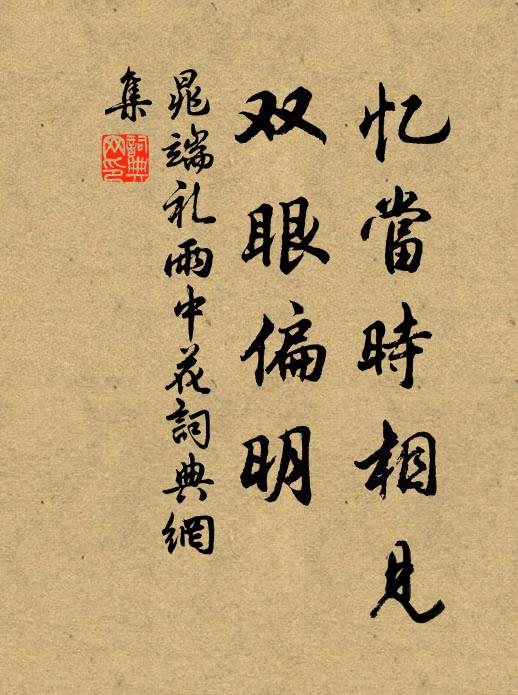 忆當時相见
双眼偏明
晁端礼雨中花詞典網
集
詞典
网印